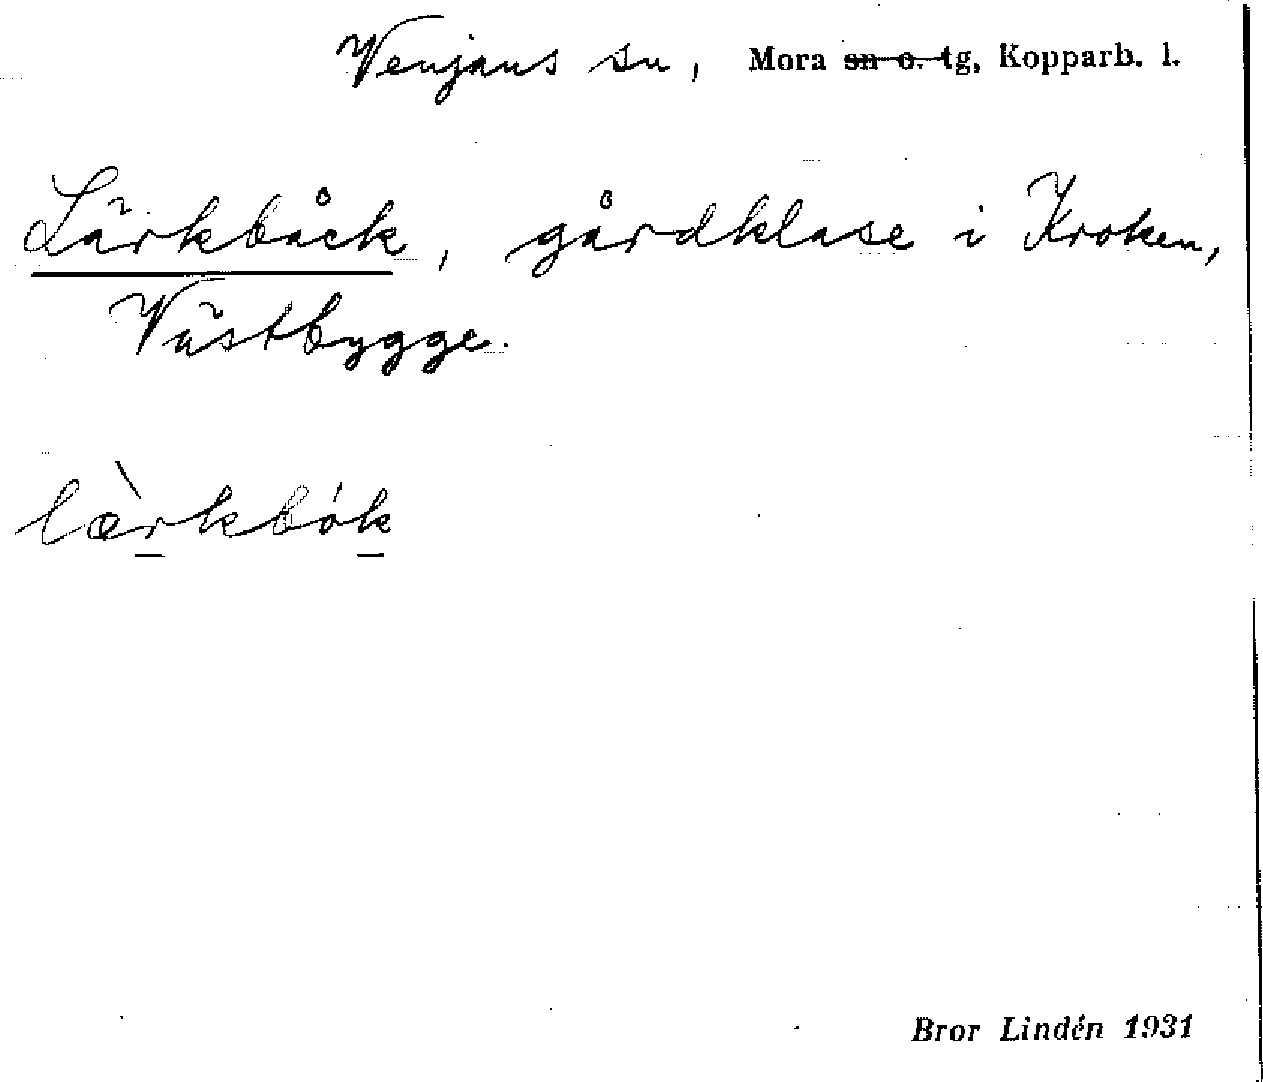 Venjans sn, Mora sn o. tg, Kopparb. l.
Lärkbåck, gårdklase i Kroken,
Västbygge.
lærkbók
Bror Lindén 1931